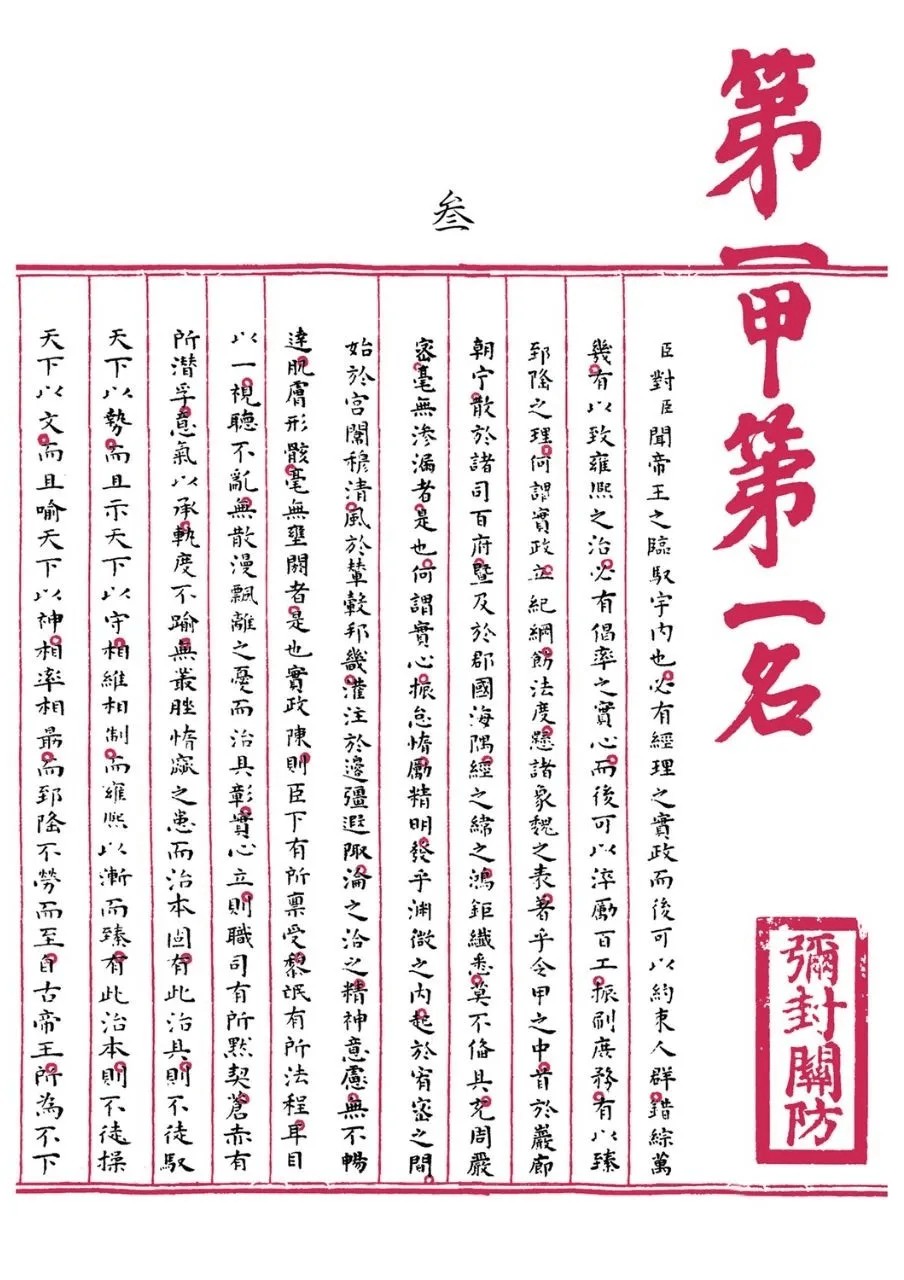 第一甲第一名
彌封關防
叁
臣對臣聞帝王之臨馭宇內也必有經理之實政而後可以約束人群錯綜萬
幾有以致雍熙之治必有倡率之實心而後可以淬勵百工振刷庶務有以臻
郅隆之理何謂實政立紀綱飭法度懸諸象魏之表著乎令甲之中首於巖廊
朝宁散於諸司百府暨及於郡國海隅經之緯之鴻鉅纖悉莫不備具充周嚴
密毫無滲漏者是也何謂實心振怠惰勵精明發乎淵微之內起於宥密之間
始於宮闈穆清風於輦轂邦畿灌注於邊疆遐陬淪之洽之精神意慮無不暢
達肌膚形骸毫無壅閼者是也實政陳則臣下有所稟受黎氓有所法程耳目
以一視聽不亂無散漫飄離之憂而治具彰實心立則職司有所默契蒼赤有
所潛孚意氣以承軌度不踰無叢脞惰窳之患而治本固有此治具則不徒馭
天下以勢而且示天下以守相維相制而雍熙以漸而臻有此治本則不徒操
天下以文而且喻天下以神相率相勗而郅隆不勞而至自古帝王所為不下